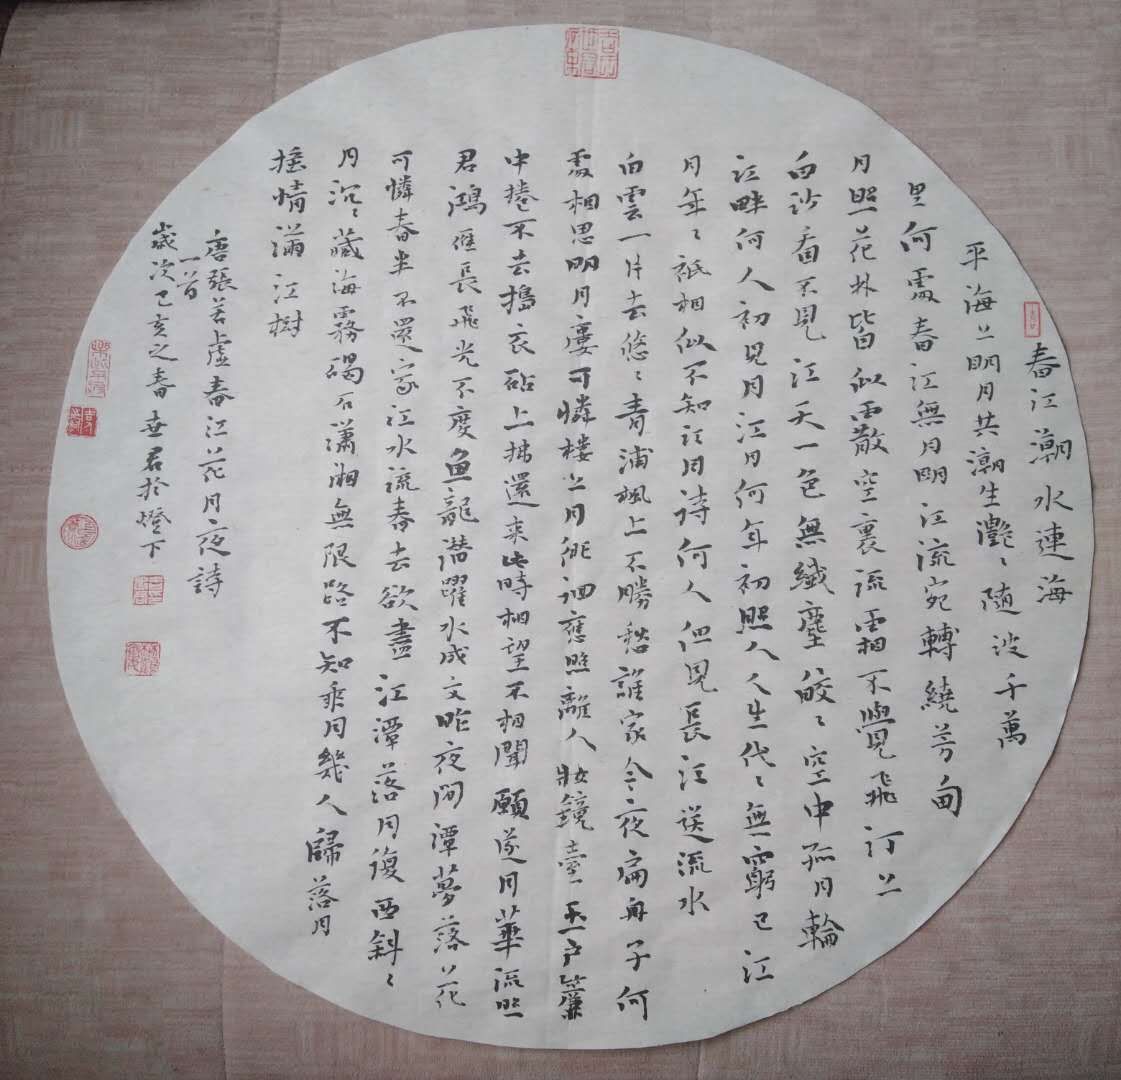 春江潮水連海
平海上明月共潮生灩〻隨波千萬
里何處春江無月明江流宛轉繞芳甸
月照花林皆似霰空裏流霜不覺飛汀上
白沙看不見江天一色無纖塵皎〻空中孤月輪
江畔何人初見月江月何年初照人人生代〻無窮已江
月年〻祇相似不知江月待何人但見長江送流水
白雲一片去悠〻青浦楓上不勝愁誰家今夜扁舟子何
處相思明月樓可憐樓上月徘徊應照離人妝鏡臺玉戶簾
中捲不去搗衣砧上拂還来此時相望不相聞願逐月華流照
君鴻雁長飛光不度魚龍潛躍水成文昨夜閒潭夢落花
可憐春半不還家江水流春去欲盡江潭落月復西斜〻
月沉〻藏海霧碣石瀟湘無限路不知乘月幾人歸落月
摇情滿江樹
唐張若虛春江花月夜詩
一首
歲次己亥之春 君於燈下